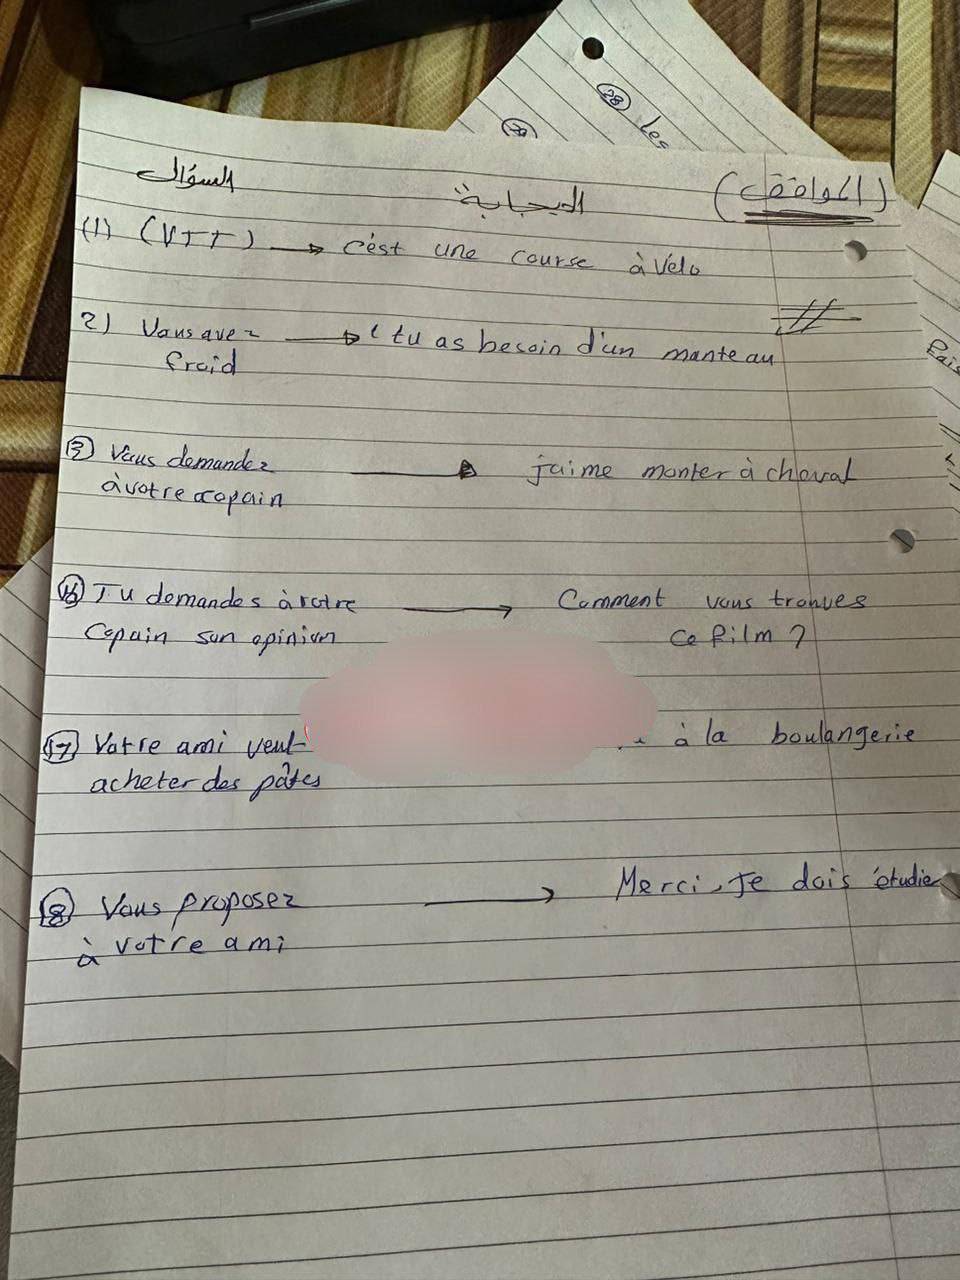 (28) Les
السؤال
الاجابة
(المواقف)
(1) (VTT) → c'est une course à vélo
2) Vous avez → tu as besoin d'un manteau
froid
(3) Vous demandez → j'aime monter à cheval
à votre copain
(16) Tu demandes à votre → Comment vous trouves
Copain son opinion ce film ?
(17) Votre ami veut à la boulangerie
acheter des pâtes
(8) Vous proposez → Merci, Je dois étudie
à votre ami